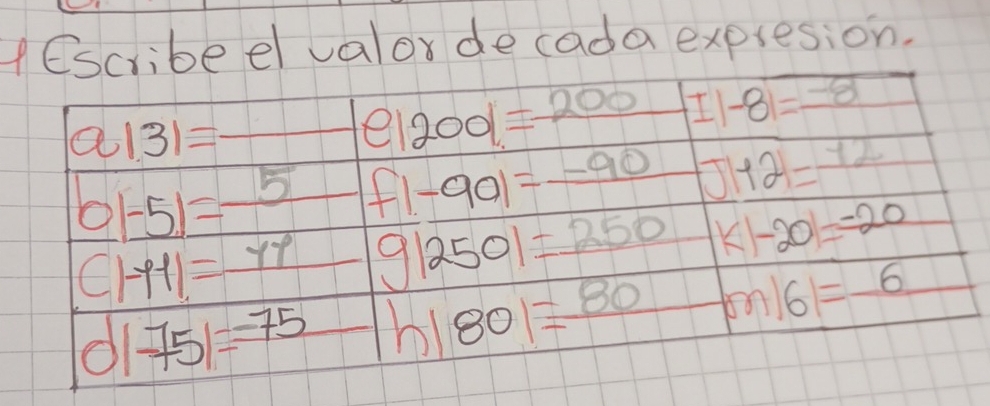 1 Escribe el valor de cada expresión.
a|3|= e|200|= 200 I|-8|= -8
b|-5|= 5 f|-90|= -90 J|+2|= +2
c|-11|= 11 g|250|= 250 K|-20|= -20
d|-75|= -75 h|80|= 80 m|6|= 6